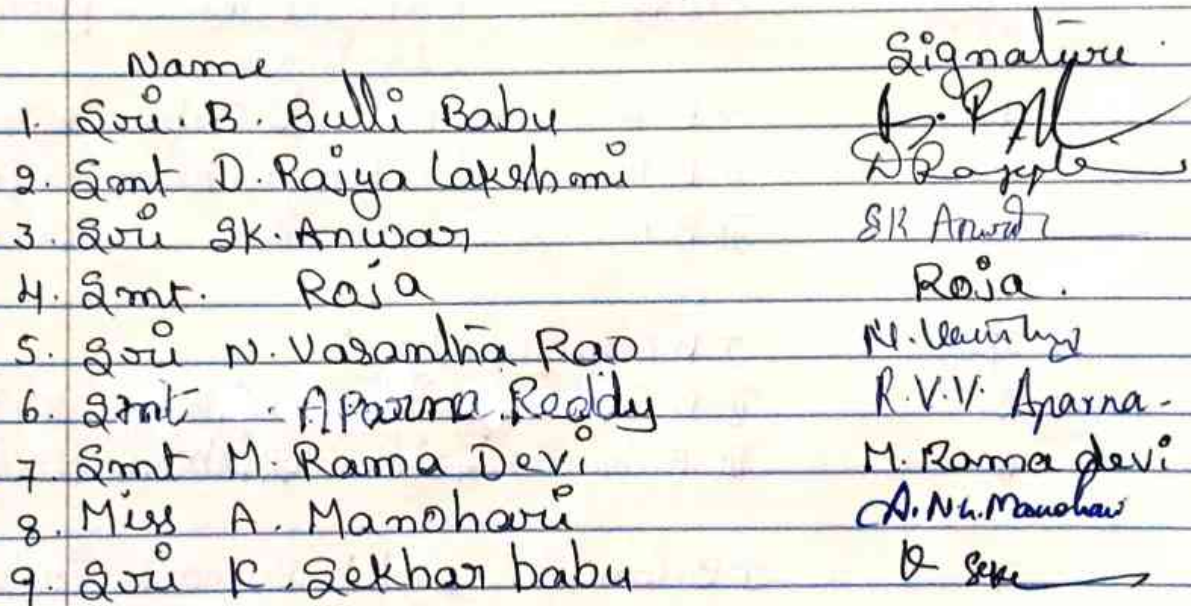 Name Signature
1. Sri. B. Bulli Babu
2. Smt D. Rajya Lakshmi
3. Sri SK. Anwar SK Anwar
4. Smt. Roja Roja.
5. Sri N. Vasantha Rao N.
6. Smt. Aparna Reddy R.V.V. Aparna
7. Smt M. Rama Devi M. Rama devi
8. Miss A. Manohari A.Nh.Manohari
9. Sri K. Sekhar babu